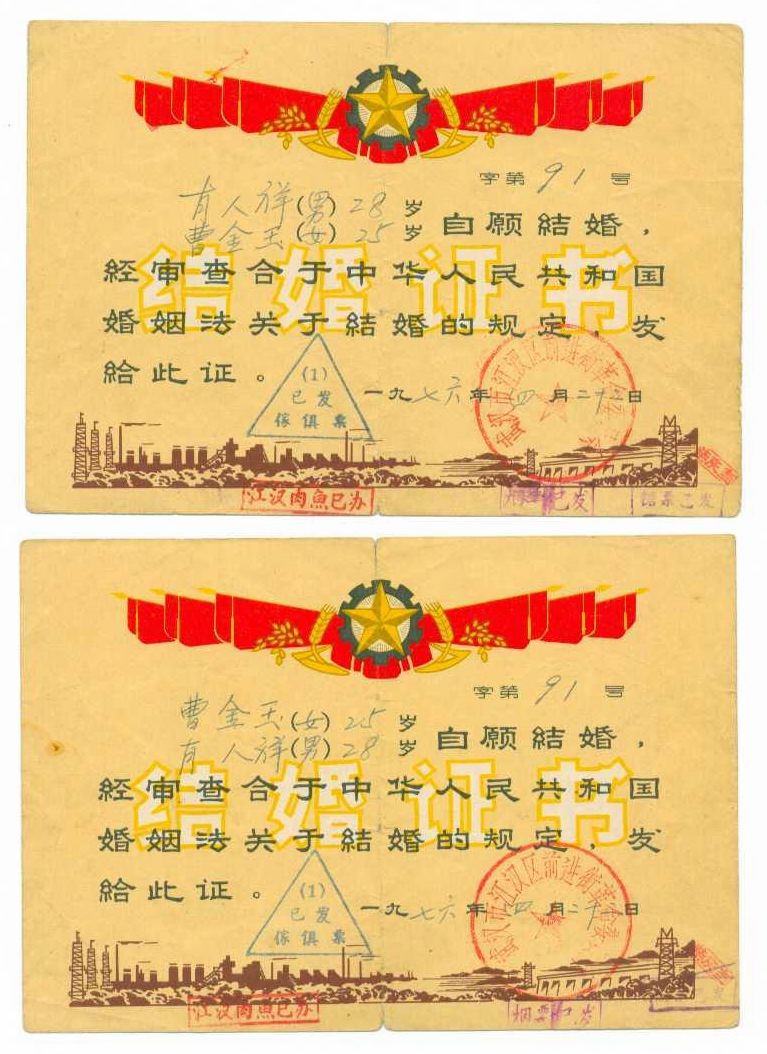 字第 91 号
有人祥(男)28岁
曹金玉(女)25岁
自愿結婚，
結婚证书
経审查合于中华人民共和国
婚姻法关于結婚的规定，发
給此证。
一九七六年四月二十二日
武汉市江汉区前进街革命委
(1)
已发
傢俱票
江汉肉魚已办
已发
字第 91 号
曹金玉(女)25岁
有人祥(男)28岁
自愿結婚，
結婚证书
経审查合于中华人民共和国
婚姻法关于結婚的规定，发
給此证。
一九七六年四月二十 日
武汉市江汉区前进街革 委
(1)
已发
傢俱票
江汉肉魚已办